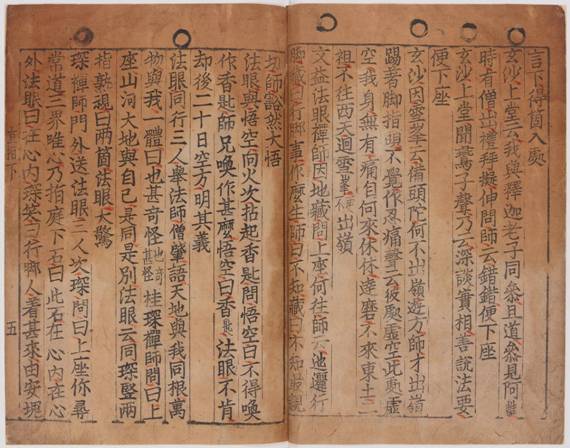 言下得箇入處
玄沙上堂云我與釋迦老子同叅且道叅見阿誰
時有僧出禮拜擬伸問師云錯錯便下座
玄沙上堂聞鷰子聲乃云深談實相善說法要
便下座
玄沙因雪峯云備頭陀何不出嶺遊方師才出嶺
踢著脚指頭不覺作忍痛聲云彼處虛空此處虛
空我身無有痛自何來休休達磨不來東土二
祖不往西天廻雪峯不出嶺
文益法眼禪師因地藏問上座何往師云迆邐行
脚藏曰行脚事作麽生師曰不知藏曰不知最親
切師豁然大悟
法眼與悟空向火次拈起香匙問悟空曰不得喚
作香匙師兄喚作甚麽悟空曰香匙法眼不肯
却後二十日空方明其義
法眼同行三人擧法師僧肇語天地與我同根萬
物與我一體曰也甚奇怪也奇甚怪桂琛禪師問曰上
座山河大地與自己是同是別法眼云同琛竪兩
指熟視曰兩箇法眼大驚
琛禪師門外送法眼三人次琛問曰上座你尋
常道三界唯心乃指庭下石曰此石在心內在心
外法眼曰在心內琛笑曰行脚人着甚來由安塊
五